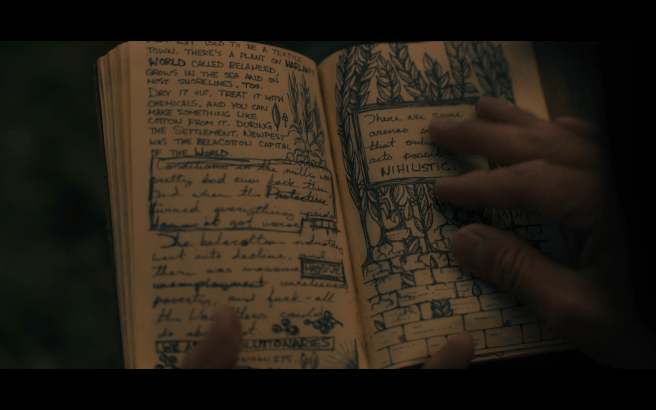 NEWPEST USED TO BE A TEXTILE
TOWN. THERE'S A PLANT ON HARLAN'S
WORLD CALLED BELAWEED,
GROWS IN THE SEA AND ON
MOST SHORELINES, TOO.
DRY IT OUT, TREAT IT WITH
CHEMICALS, AND YOU CAN
MAKE SOMETHING LIKE
COTTON FROM IT. DURING
THE SETTLEMENT, NEWPEST
WAS THE BELACOTTON CAPITAL
OF THE WORLD.
Conditions in the mills were
pretty bad even back then
and when the
turned everything
it got worse
The belacotton industry
went into decline,
there was massive MASSIVE
unemployment unrelieved
poverty, and fuck-all
the could
do about
REVOLUTIONARIES
There are some
arenas
that only
acts
NIHILISTIC.